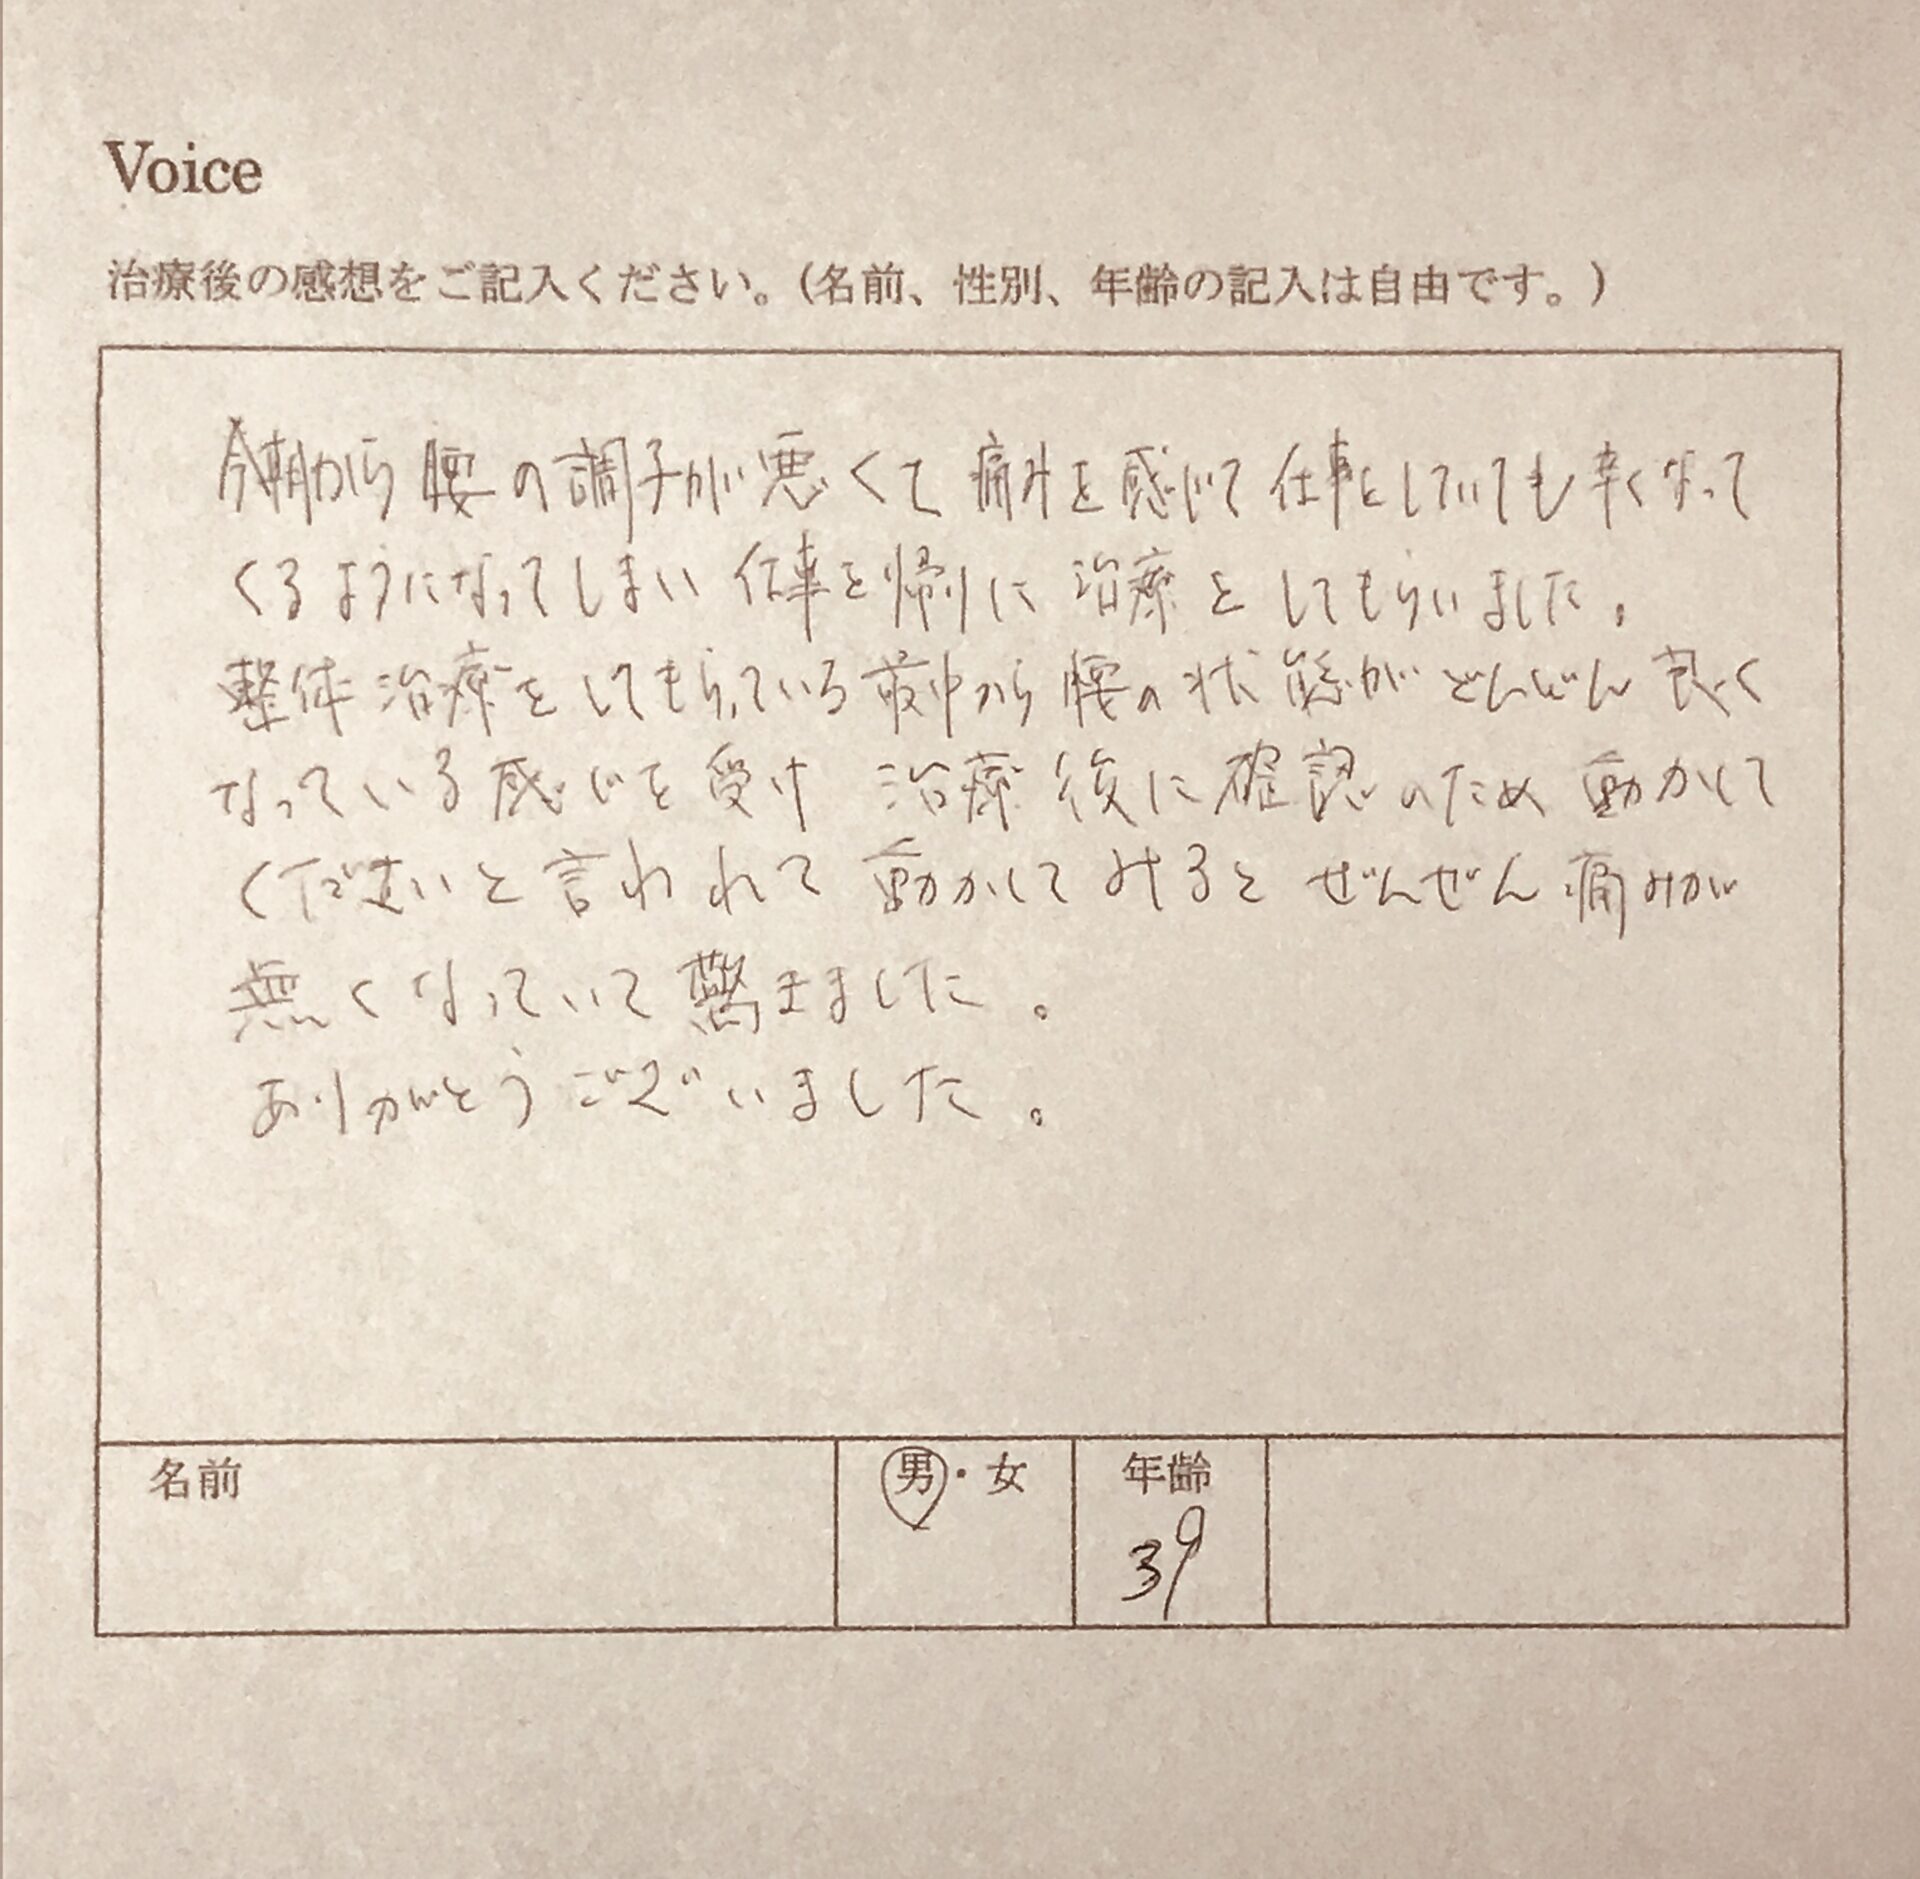 Voice
治療後の感想をご記入ください。(名前、性別、年齢の記入は自由です。)
今朝から腰の調子が悪くて痛みを感じて仕事をしていても辛くなって
くるようになってしまい仕事を帰りに治療をしてもらいました。
整体治療をしてもらっている最中から腰の状態がどんどん良く
なっている感じを受け治療後に確認のため動かして
くださいと言われて動かしてみるとぜんぜん痛みが
無くなっていて驚きました。
ありがとうございました。
名前 男・女 年齢
39